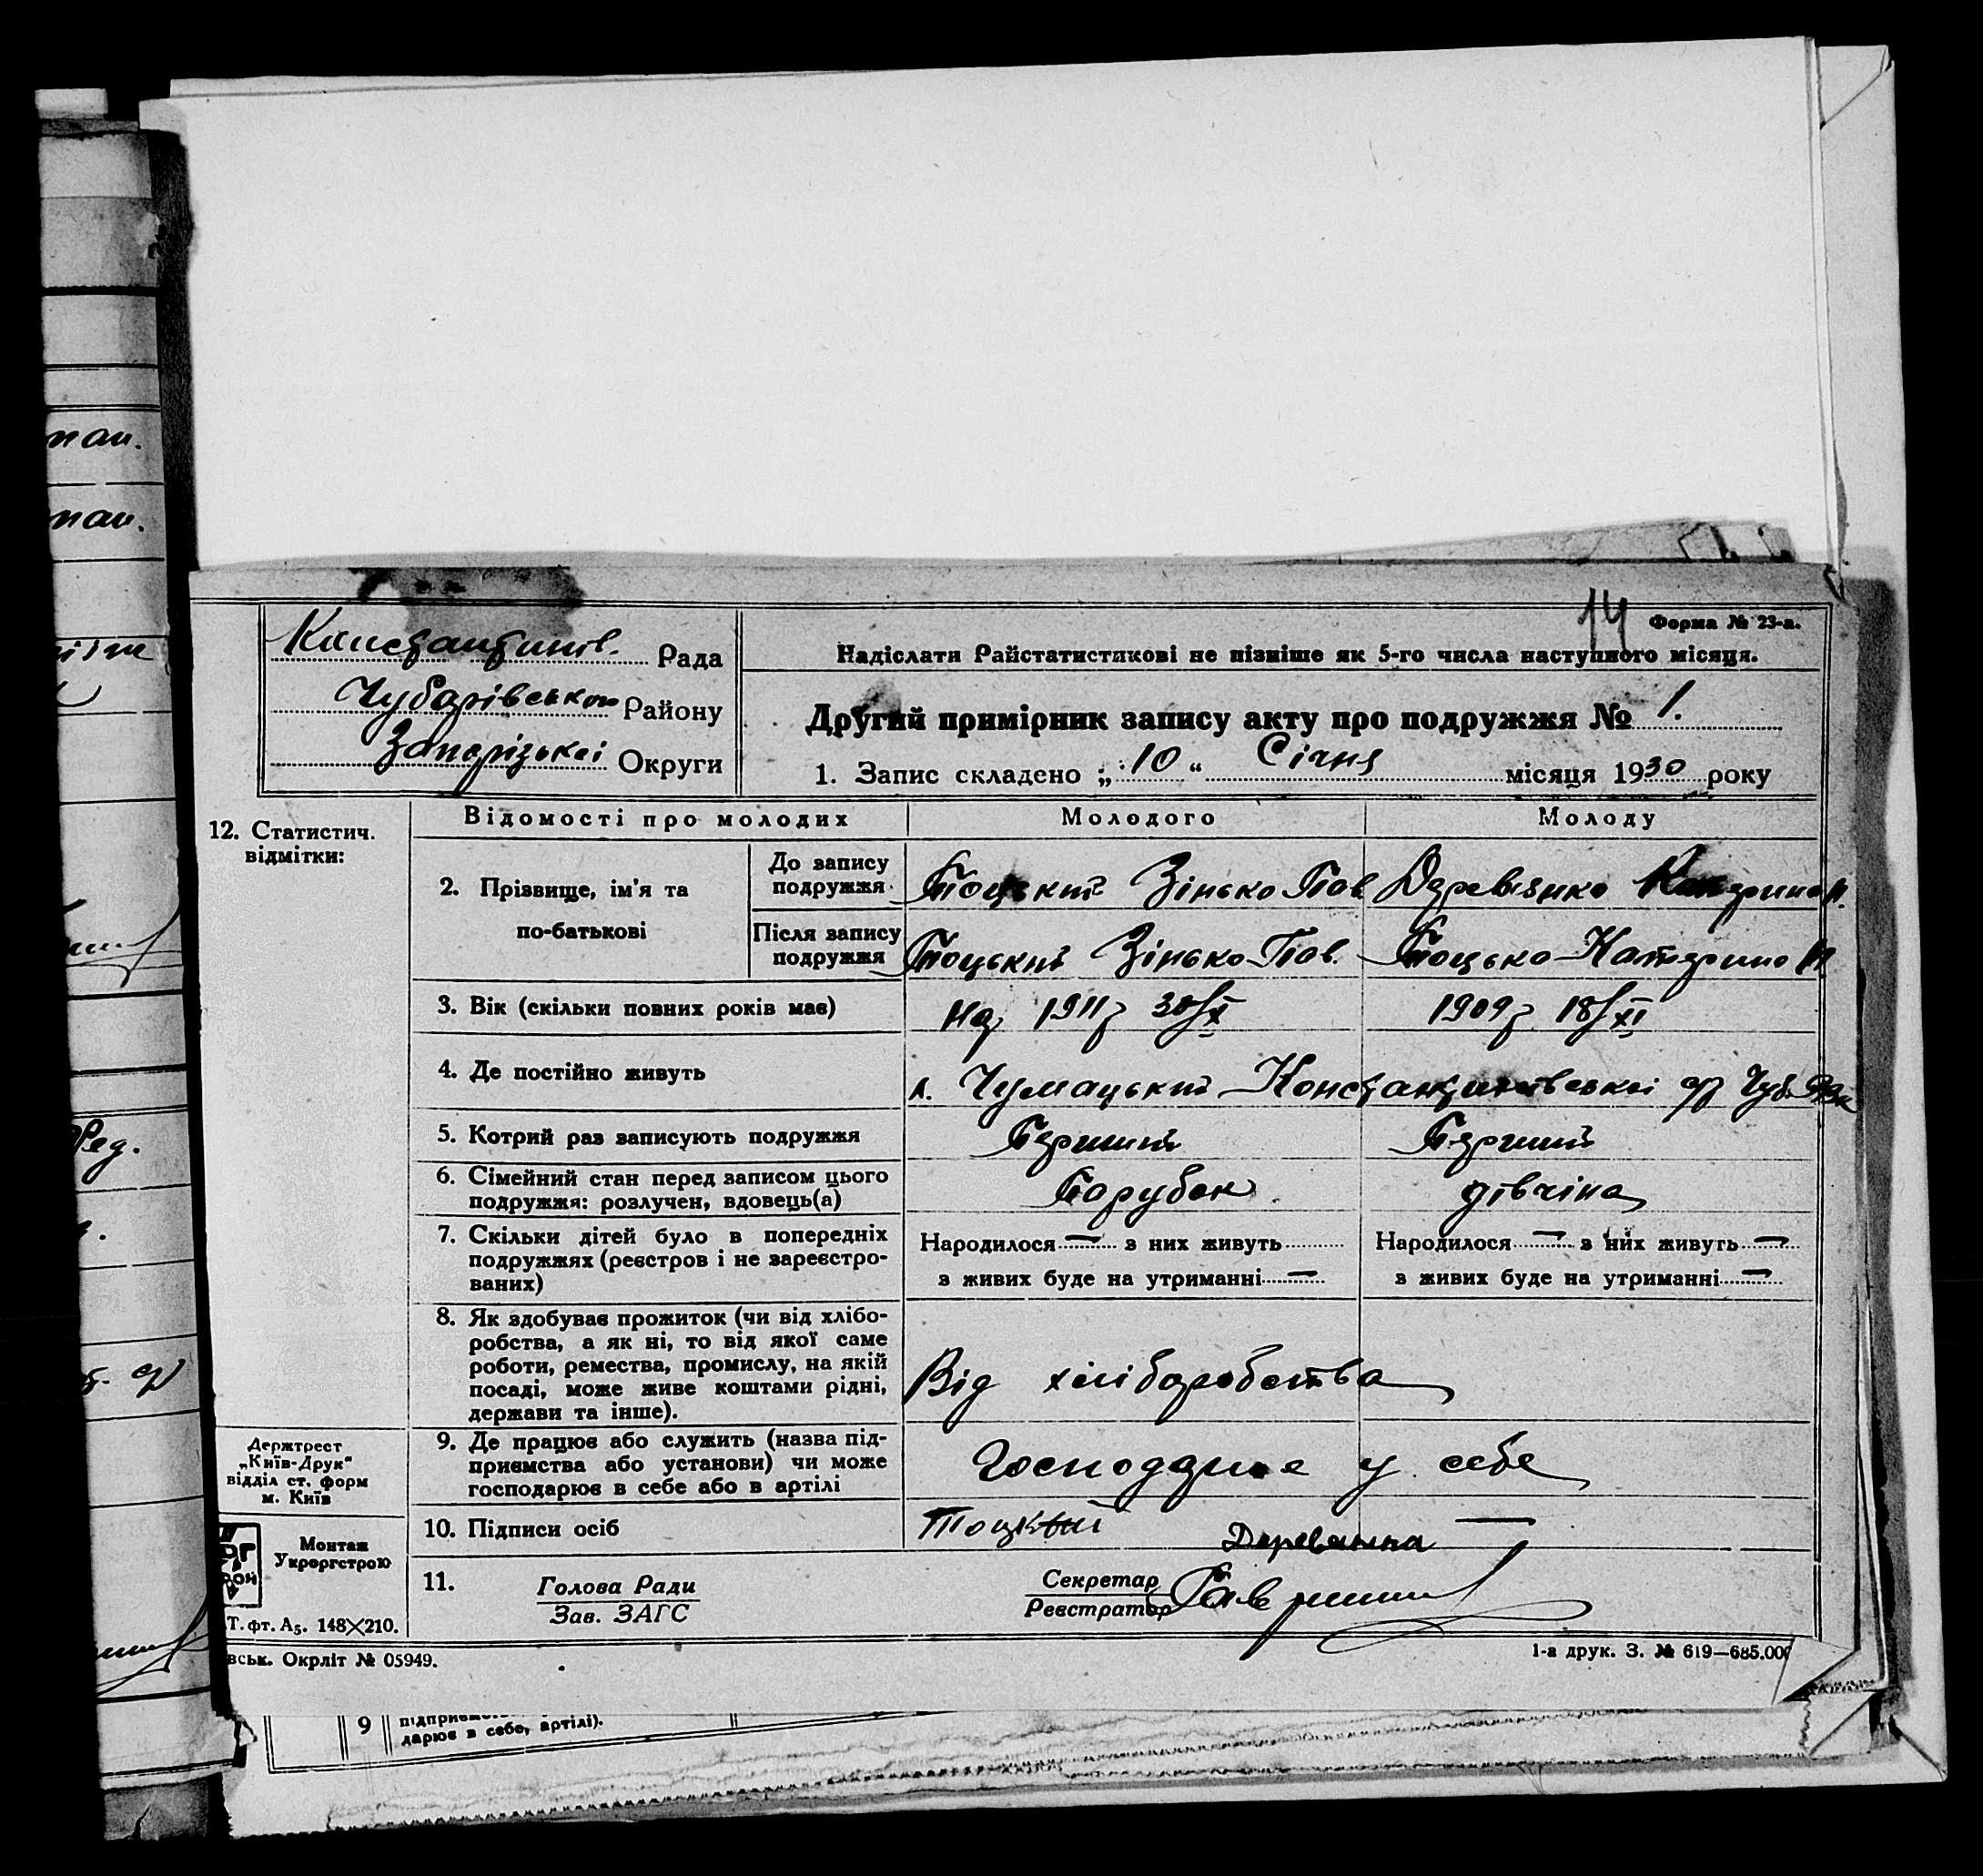 пан.
пан.
14
Форма № 23-а.
Константинів. Рада
Чубарівського Району
Запорізької Округи
Надіслати Райстатистикові не пізніше як 5-го числа наступного місяця.
Другий примірник запису акту про подружжя № 1.
1. Запис складено „ 10 “ Січня місяця 1930 року
12. Статистич.
відмітки:
Відомості про молодих
Молодого
Молоду
2. Прізвище, ім'я та
по-батькові
До запису
подружжя
Тоцький Зінько Пав
Деревянко Катерина
Після запису
подружжя
Тоцький Зінько Пав.
Тоцько Катерина
3. Вік (скільки повних років має)
На 1911 р 30/X
1909 р 18/XI
4. Де постійно живуть
х. Чумацький Константинівської с/р Чуб. Рай
5. Котрий раз записують подружжя
Перший
Перший
6. Сімейний стан перед записом цього
подружжя: розлучен, вдовець(а)
Парубок
дівчина
7. Скільки дітей було в попередніх
подружжях (реєстров і не зареєстро-
ваних)
Народилося — з них живуть
з живих буде на утриманні —
Народилося — з них живуть —
з живих буде на утриманні —
8. Як здобуває прожиток (чи від хлібо-
робства, а як ні, то від якої саме
роботи, ремества, промислу, на якій
посаді, може живе коштами рідні,
держави та інше).
Від хліборобства
9. Де працює або служить (назва під-
приємства або установи) чи може
господарює в себе або в артілі
Господарює у себе
10. Підписи осіб
Тоцкий
Деревянка —
11.
Голова Ради
Зав. ЗАГС
Секретар
Реєстратор
Держтрест
„Київ-Друк“
відділ ст. форм
м. Київ
Монтаж
Укроргстрою
Т. фт. А5. 148×210.
вськ. Окрліт № 05949.
1-а друк. З. № 619—685.000
9
дарює в себе, артілі).